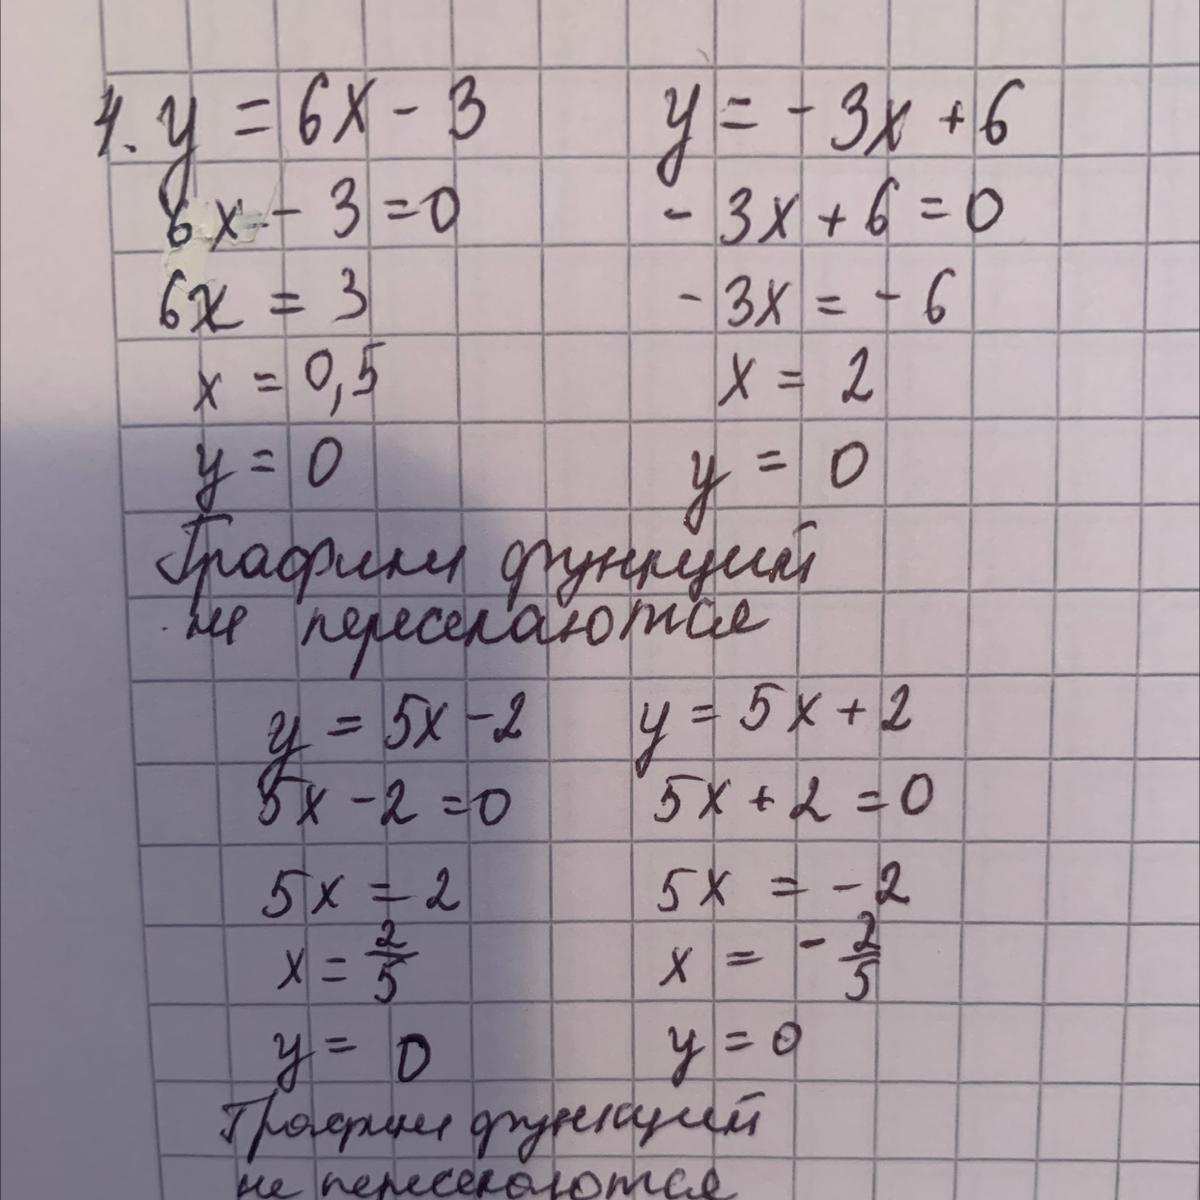 4. y = 6x - 3 y = - 3x + 6
6x - 3 = 0 - 3x + 6 = 0
6x = 3 - 3x = - 6
x = 0,5 x = 2
y = 0 y = 0
Графики функций
не пересекаются
y = 5x - 2 y = 5x + 2
5x - 2 = 0 5x + 2 = 0
5x = 2 5x = - 2
x = 2/5 x = - 2/5
y = 0 y = 0
Графики функций
не пересекаются